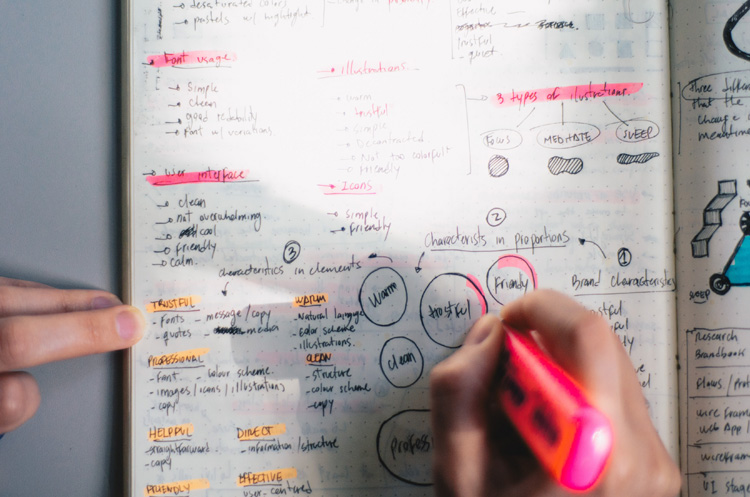 desaturated colors
pastels w/ highlight
Effective
trustful
quiet.
Font usage
Simple
clean
good readability
Font w/ variations
Illustrations
warm
trustful
Simple
Not too colorful
Friendly
3 types of ilustrations.
FOCUS
MEDITATE
SLEEP
User interface
clean
not overwhelming
cool
friendly
calm.
Icons
simple
friendly
2
Characterists in proportions
3
characteristics in elements
1
Brand characteristics
TRUSTFUL
- Fonts - message/copy
- quotes - media
PROFESSIONAL
- Font - colour scheme.
- images/icons/illustrations
- copy
HELPFUL
- straightforward
- copy
DIRECT
- information/structure
FRIENDLY
EFFECTIVE
user-centered
WARM
- Natural language
- Color scheme
- illustrations.
CLEAN
- structure
- colour scheme
- copy
Warm
trustful
friendly
clean
Three
that the
change
SLEEP
Research
Flows /
wire frame
web App /
wireframe
UI stage